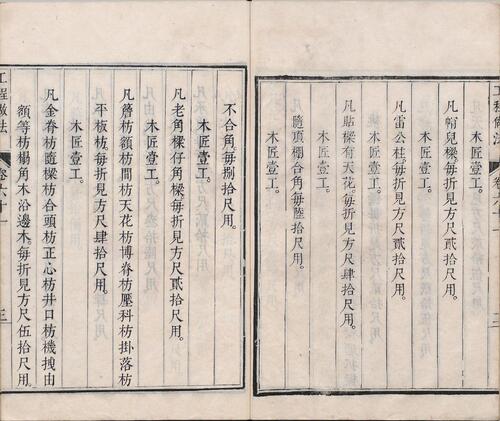 工程做法 卷六十一 二
凡帽兒樑每折見方尺貳拾尺用。
木匠壹工。
凡雷公柱每折見方尺貳拾尺用。
木匠壹工。
凡貼樑有天花每折見方尺肆拾尺用。
木匠壹工。
隨頂棚合角每陸拾尺用。
木匠壹工。
不合角每捌拾尺用。
木匠壹工。
凡老角樑仔角樑每折見方尺貳拾尺用。
木匠壹工。
凡簷枋額枋間枋天花枋博脊枋壓科枋掛落枋
平板枋每折見方尺肆拾尺用。
木匠壹工。
凡金脊枋隨樑枋合頭枋正心枋井口枋機拽由
額等枋榻角木沿邊木每折見方尺伍拾尺用。
工程做法 卷六十一 三